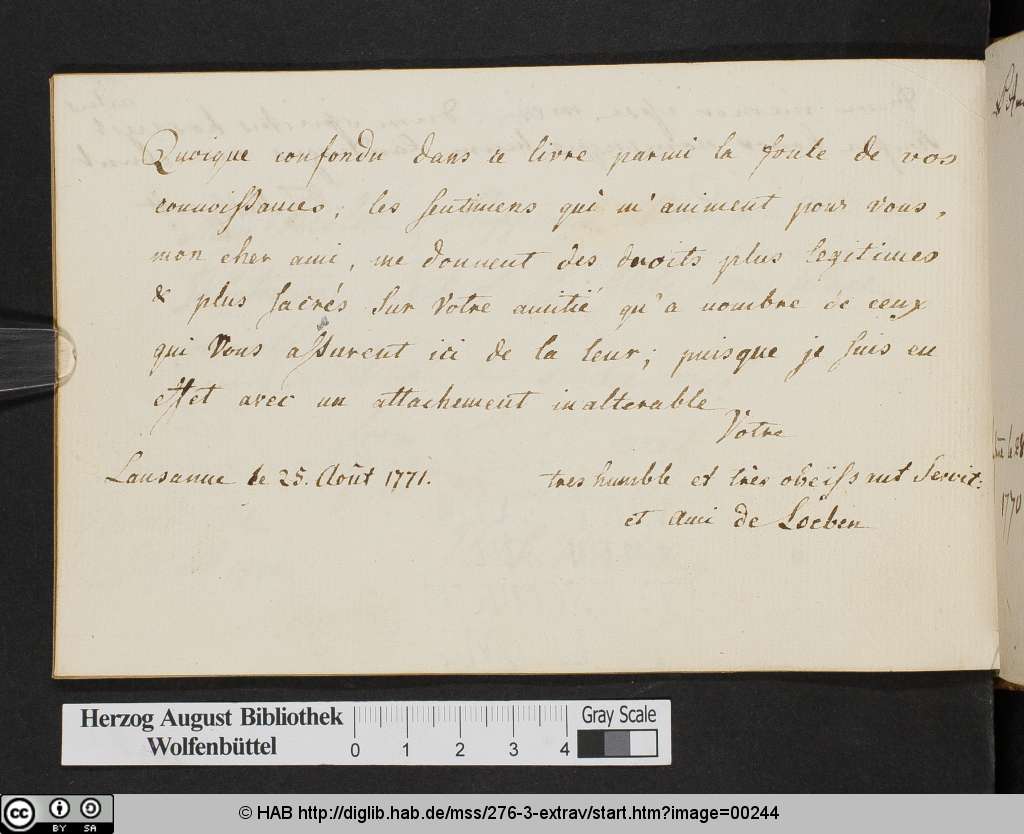 Quoique confondu dans ce livre parmi la foule de vos
connoissances, les sentimens qui m'animent pour vous,
mon cher ami, me donnent des droits plus legitimes
& plus sacrés sur votre amitié qu'a nombre de ceux
qui Vous assurent ici de la leur; puisque je suis en
effet avec un attachement inalterable
Votre
Lausanne le 25. Août 1771.
tres humble et très obeïssant Servit:
et Ami de Loeben
1770
Herzog August Bibliothek
Wolfenbüttel
0 1 2 3 4
Gray Scale
cc BY SA
© HAB http://diglib.hab.de/mss/276-3-extrav/start.htm?image=00244